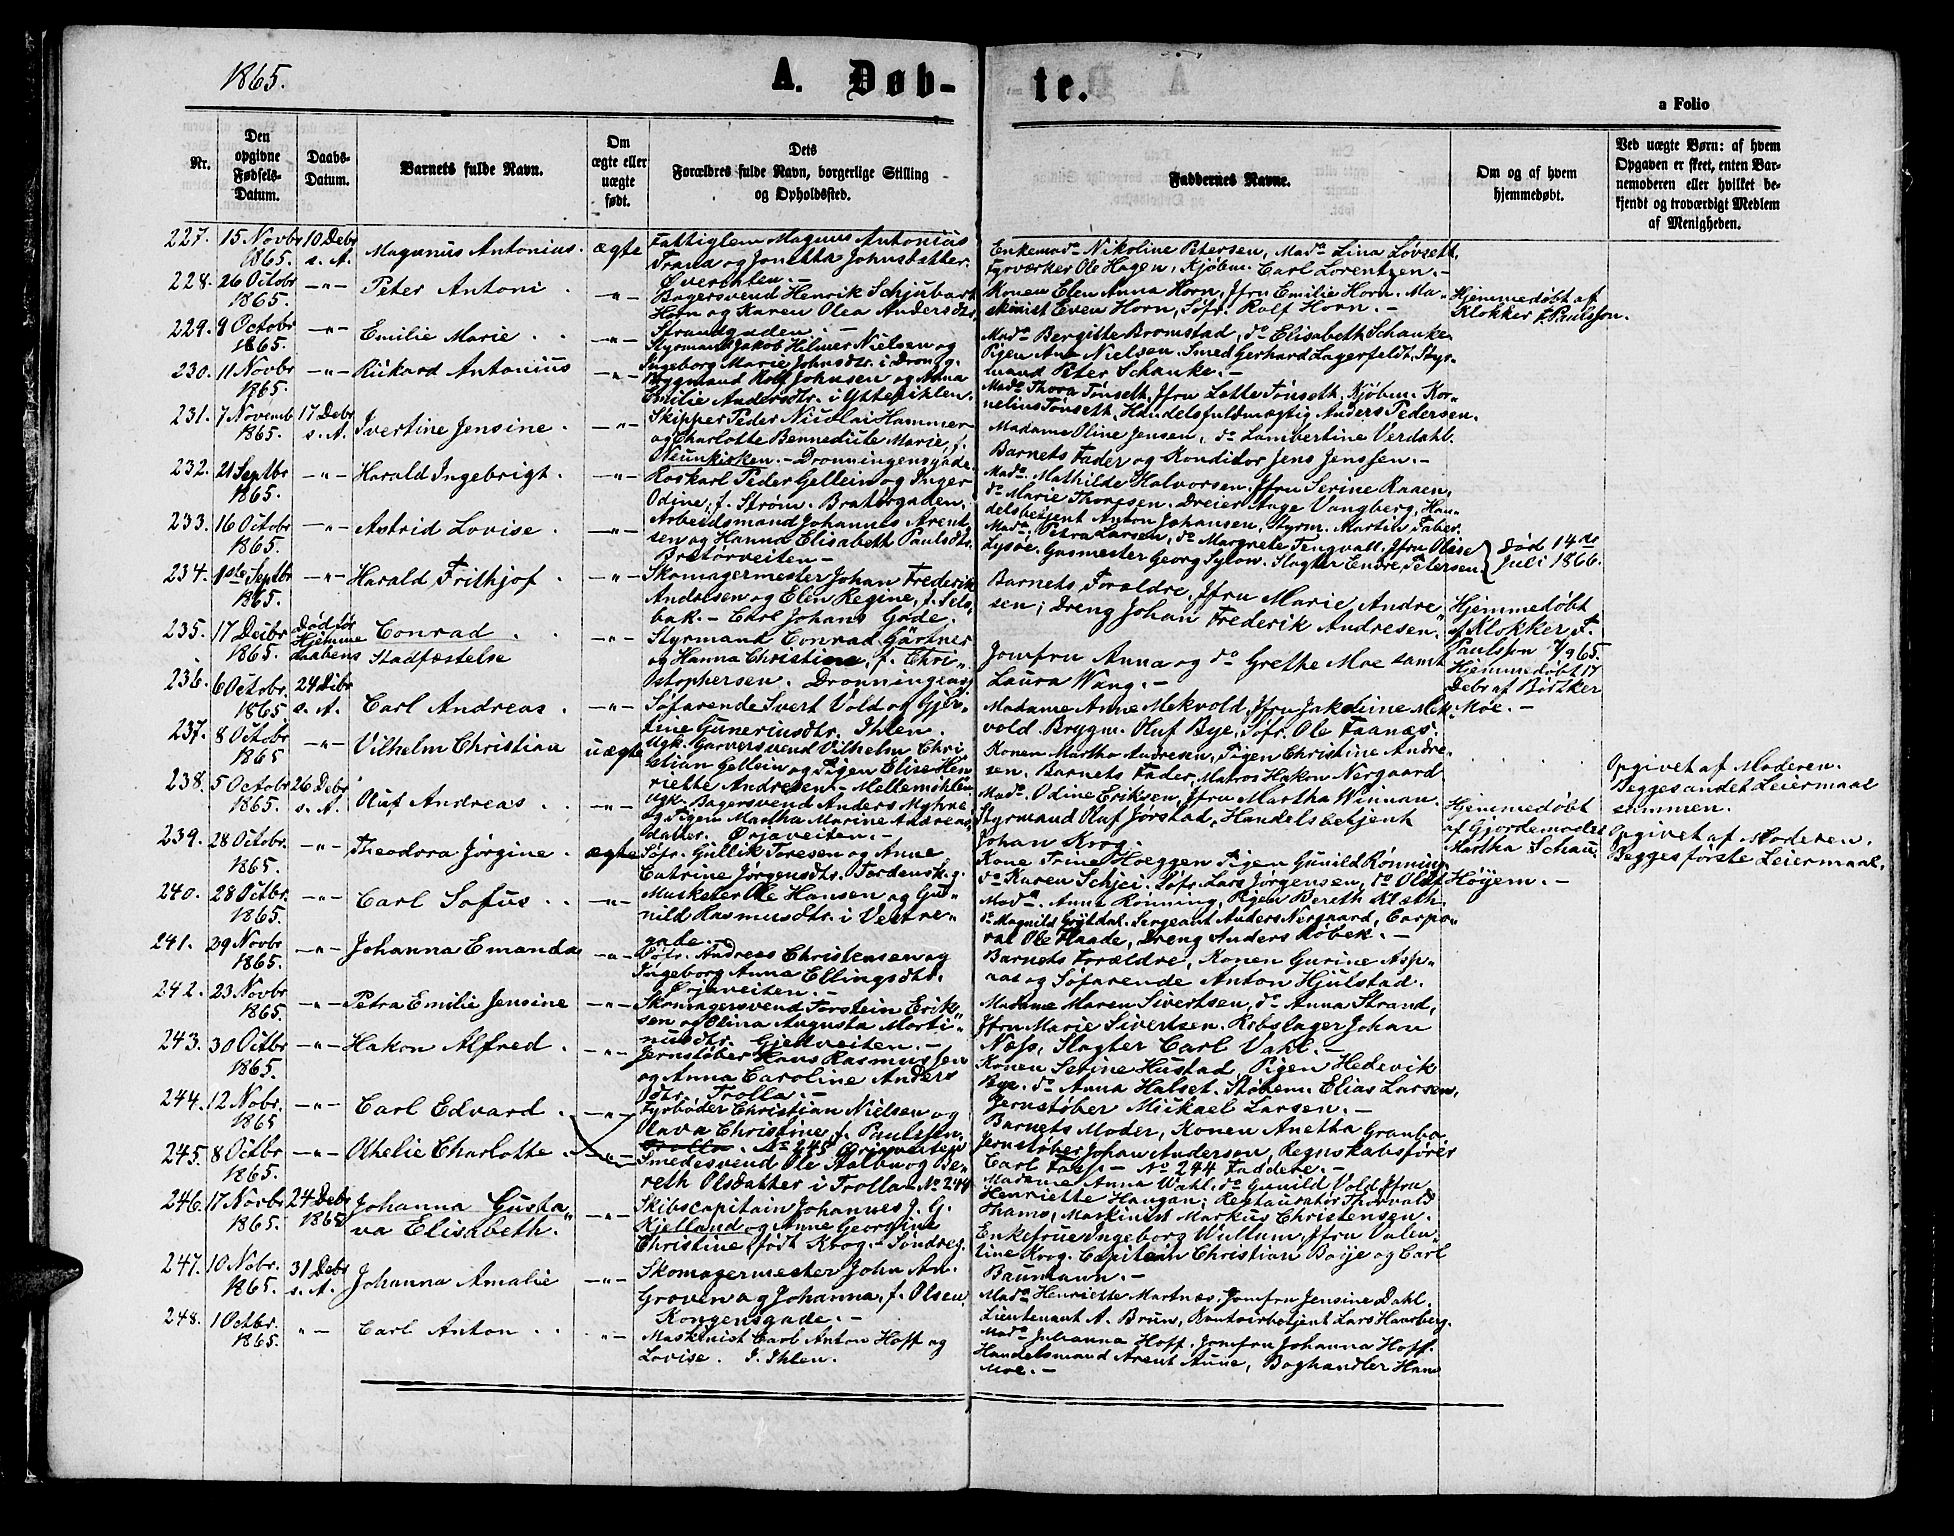 1865.
A. Døb-
te.
a Folio
Nr.
Den opgivne Fødsels-Datum.
Daabs-Datum.
Barnets fulde Navn.
Om ægte eller uægte født.
Dets Forældres fulde Navn, borgerlige Stilling og Opholdssted.
Faddernes Navne.
Om og af hvem hjemmedøbt.
Ved uægte Børn: af hvem Opgaven er skeet, enten Barnemoderen eller hvilket bekjendt og troværdigt Medlem af Menigheden.
227. 15 Novbr 1865. 10 Debr s. A. Magnus Antonius. ægte
Fattiglem Magnus Antonius
Trana og Jonetta Johnsdatter.
Øvre Ihlen. –
Enkemad. Nikoline Petersen, Mad. Lina Løvsett,
Fyrværker Ole Hagen, Kjøbm. Carl Lorentzen. –
228. 26 Octobr 1865. –"– Peter Antoni. –"–
Bagersvend Henrik Schjubart
Horn og Karen Olea Andersdtr.
Strandgaden. –
Konen Elen Anna Horn, Jfru Emilie Horn. Ma-
skinist Even Horn, Søfr. Rolf Horn. –
Hjemmedøbt af
Klokker F. Paulsson.
229. 9 Octobr 1865. –"– Emilie Marie. –"–
Styrmand Jakob Hilmer Nielsen og
Ingeborg Marie Johnsdtr. i Dron. g.
Mad. Bergitte Bromstad, do Elisabeth Schanke
Pigen Ane Nielsen. Smed Gerhard Lagerfeldt. Styr-
mand Peter Schanke. –
230. 11 Novbr 1865. –"– Rikard Antonius –"–
Bygmand Rolf Johnsen og Anna
Emilie Andersdtr. i Ytteriihlen.
Mad. Thora Tønseth, Jfru Lotte Tønseth, Kjøbm. Kor-
nelius Tønseth, Handelsfuldmægtig Anders Pedersen.
231. 7 Novemb 1865. 17 Debr s. A. Ivertine Jensine. –"–
Skipper Peder Nicolai Hammer
og Charlotte Bennedicte Marie f.
Neunkirken. – Dronningensgade.
Madame Oline Jensen, do Lambertine Verdahl.
Barnets Fader og Konditor Jens Jenssen. –
232. 21 Septbr 1865. –"– Harald Ingebrigt. –"–
Roskarl Peder Gellein og Inger
Odine, f. Strøm. Bratørgaden.
Mad. Mathilde Halvorsen, Jfru Serine Raaen,
do Marie Thoresen. Dreier Aage Vangberg, Han-
delsbetjent Anton Johansen, Styrm. Martin Faber.
233. 16 Octobr 1865. –"– Astrid Lovise. –"–
Arbeidsmand Johannes Arent-
sen og Hanna Elisabeth Paulsdtr.
Bratørveiten –
Mad. Petra Larsen, do Margrete Tengvall. Jfru Olise
Lysøe, Gasmester Georg Sylow. Slagter Endre Petersen.
Død 14de
Juli 1866.
234. 1ste Septbr 1865. –"– Harald Frithjof. –"–
Skomagermester Johan Frederik
Andersen og Elen Regine, f. Sels-
bak. – Carl Johans Gade.
Barnets Foraldre, Jfru Marie Andre
sen; Dreng Johan Frederik Andresen.
Hjemmedøbt
af Klokker F.
Paulsson 7/9 65.
235. 17 Debr 1865. Død før Hjemme daabens Conrad. Stadfæstelse –"–
Styrmand Conrad Gärtner
og Hanna Christine, f. Chri-
stophersen. Dronningensg.
Jomfru Anna og do Grethe Moe samt
Laura Wang. –
Hjemmedøbt 17
Debr af Birkker
Moe. –
236. 6 Octobr. 1865 24 Dibr s. A. Carl Andreas. –"–
Søfarende Svert Vold og Gjer-
tine Gunneriusdtr. Ihlen.
Madame Anne Mekvold, Jfru Jakobine Mek-
vold. Brygm. Oluf Bye, Søfr. Ole Faanæs.
237. 8 Octobr 1865 –"– Vilhelm Christian uægte
Ugk. Garversvend Vilhelm Chri
stian Gellein og Pigen Elise Hen
riette Andresen. – Mellemihlen.
Konen Martha Andresen, Pigen Christine Andre-
sen. Barnets Fader, Matros Hakon Nergaard
Opgivet af Moderen.
Begges andet Leiermaal
sammen.
238. 5 Octobr 1865. 26 Debr s. A. Oluf Andreas. –"–
Ugk. Bagersvend Anders Myhre
og Pigen Martha Marine Andreas-
datter. Ørjaveiten. –
Mad. Odine Eriksen, Jfru Martha Winnan.
Styrmand Oluf Jørstad, Handelsbetjent
Johan Krog. –
Hjemmedøbt
af Gjordemoder
Martha Schau
Høyem. –
Opgivet af Moderen.
Begges første Leiermaal.
239. 28 Octobr. 1865. –"– Theodora Jørgine. ægte
Søfr. Gullik Toresen og Anne
Catrine Jørgensdtr. Tordensk. g.
Kone Trine Hoeggen Pigen Gunild Rønning
do Karen Schjei. Søfr. Lars Jørgensen, do Oluf
240. 28 Octbr. 1865. –"– Carl Sofus. –"–
Musketer Ole Hansen og Gu-
nild Rasmusdtr. i Vestre-
gade. –
Mad. Anna Rønning, Pigen Bereth Klæth
do Magnild Grytdal. Sergeant Anders Nergaard, Corpo-
ral Ole Flaade, Dreng Anders Robek. –
241. 29 Novbr 1865. –"– Johanna Emanda –"–
Søfr. Andreas Christensen og
Ingeborg Anna Ellingsdtr.
Ørjaveiten. –
Barnets Forældre, Konen Gurine Asp-
aas og Søfarende Anton Hjulstad.
242. 23 Novbr 1865. –"– Petra Emilie Jensine –"–
Skomagersvend Torstein Erik-
sen og Olina Augusta Morti-
nusdtr. Gjetveiten. –
Madame Maren Sivertsen, do Anna Strand,
Jfru Marie Sivertsen. Rebslager Johan
Næss, Slagter Carl Vahl. –
243. 30 Octbr 1865. –"– Hakon Alfred. –"–
Jernstøber Hans Rasmussen
og Anna Caroline Anders
dtr. Trolla. –
Konen Serine Hustad, Pigen Hedevik
Bye. do Anna Halset. Støbem. Elias Larsen,
Jernstøber Mickael Larsen. –
244. 12 Nobr. 1865 –"– Carl Edvard. –"–
Fyrbøder Christian Nielsen og
Olava Christine, f. Paulssen.
Trolla. No 245 Ørjaveiten
Barnets Moder, Konen Anetha Granbo.
Jernstøber Johan Andersen, Regnskabsfører
Carl Faess – No 244 Faddere. –
245. 8 Octbr 1865. –"– Othelie Charlotte. –"–
Smedesvend Ole Aalbu og Be-
reth Olsdatter i Trolla. No 244
Madame Anna Wahl. do Gunild Vold Jfru
Henriette Haugan; Restauratør Thorvald
Thams, Maskinist Markus Christensen.
246. 17 Novbr 1865. 24 Debr 1865 Johanna Gusta-
va Elisabeth. –"–
Skibscapitain Johannes J. G.
Kjelland og Anne Georgine
Christine, født Krog. – Søndreg.
Enkefrue Ingeborg Wullum, Jfru Valen-
tine Krog. Capitain Christian Boije og Carl
Baumann. –
247. 10 Nobr. 1865. 31 Debr s. A. Johanna Amalie –"–
Skomagermester John An.
Groven og Johanna, f. Olsen.
Kongensgade. –
Mad. Henriette Martnæs, Jomfru Jensine Dahl.
Lieutenant A. Bruun, Kontoirbetjent Lars Haarberg.
248. 1 Octbr. 1865. "– Carl Anton. . –"–
Maskinist Carl Anton Hoff og
Lovise. I. Ihlen.
Mad. Julianna Hoff. Jomfru Johanna Hoff.
Handelsmand Arent Aune, Boghandler Hans
Moe. –